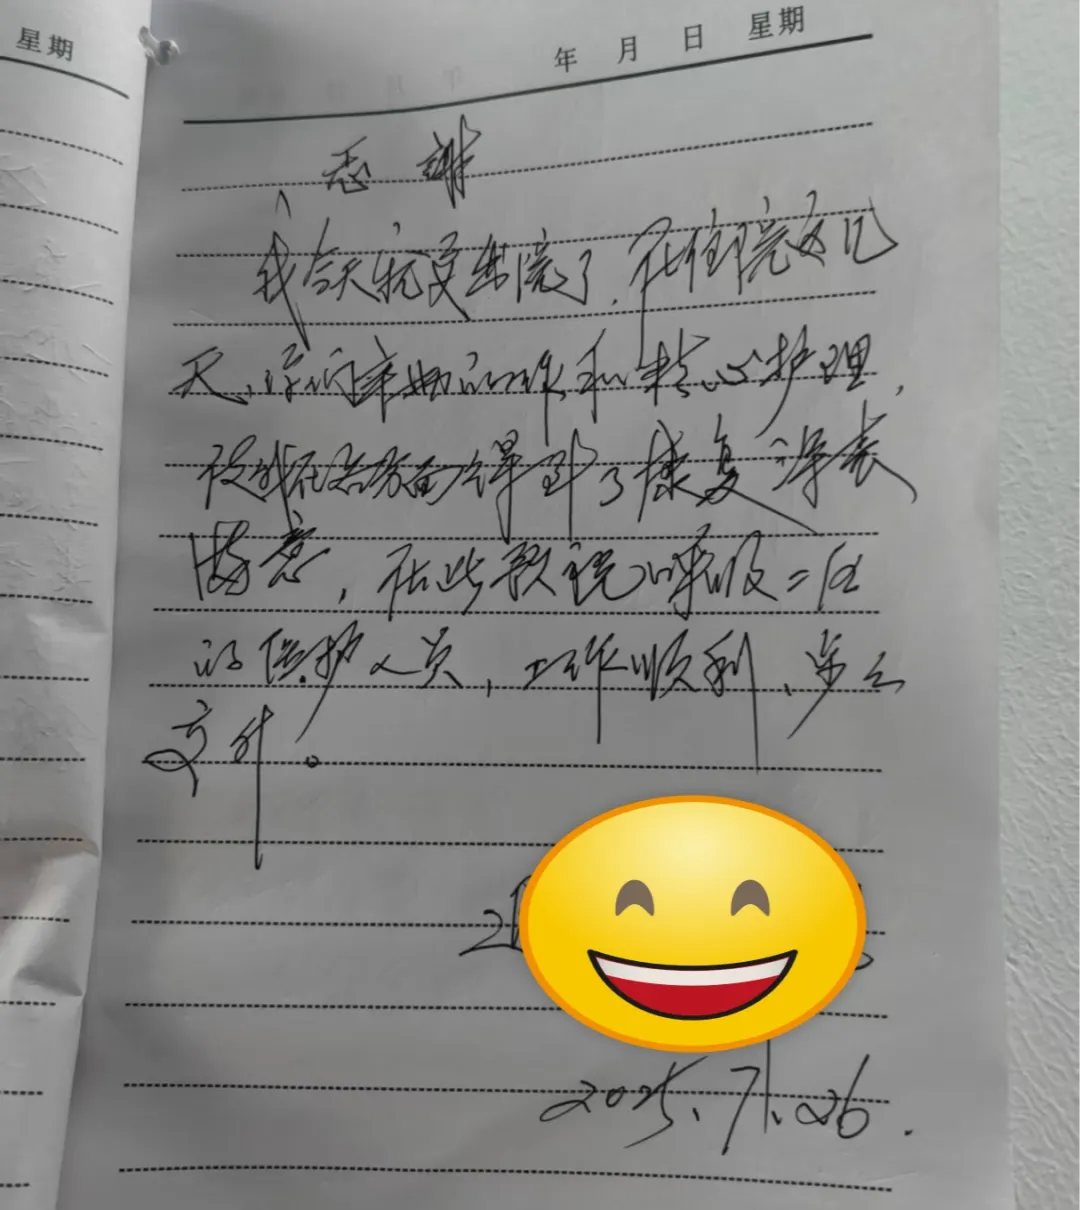 星期
年 月 日 星期
感谢
我今天康复出院了,在住院这几
天,你们辛勤的工作和精心护理,
使我在各方面得到了康复,深表
满意,在此预祝呼吸二区
的医护人员,工作顺利、步步
高升。
2025.7.26.